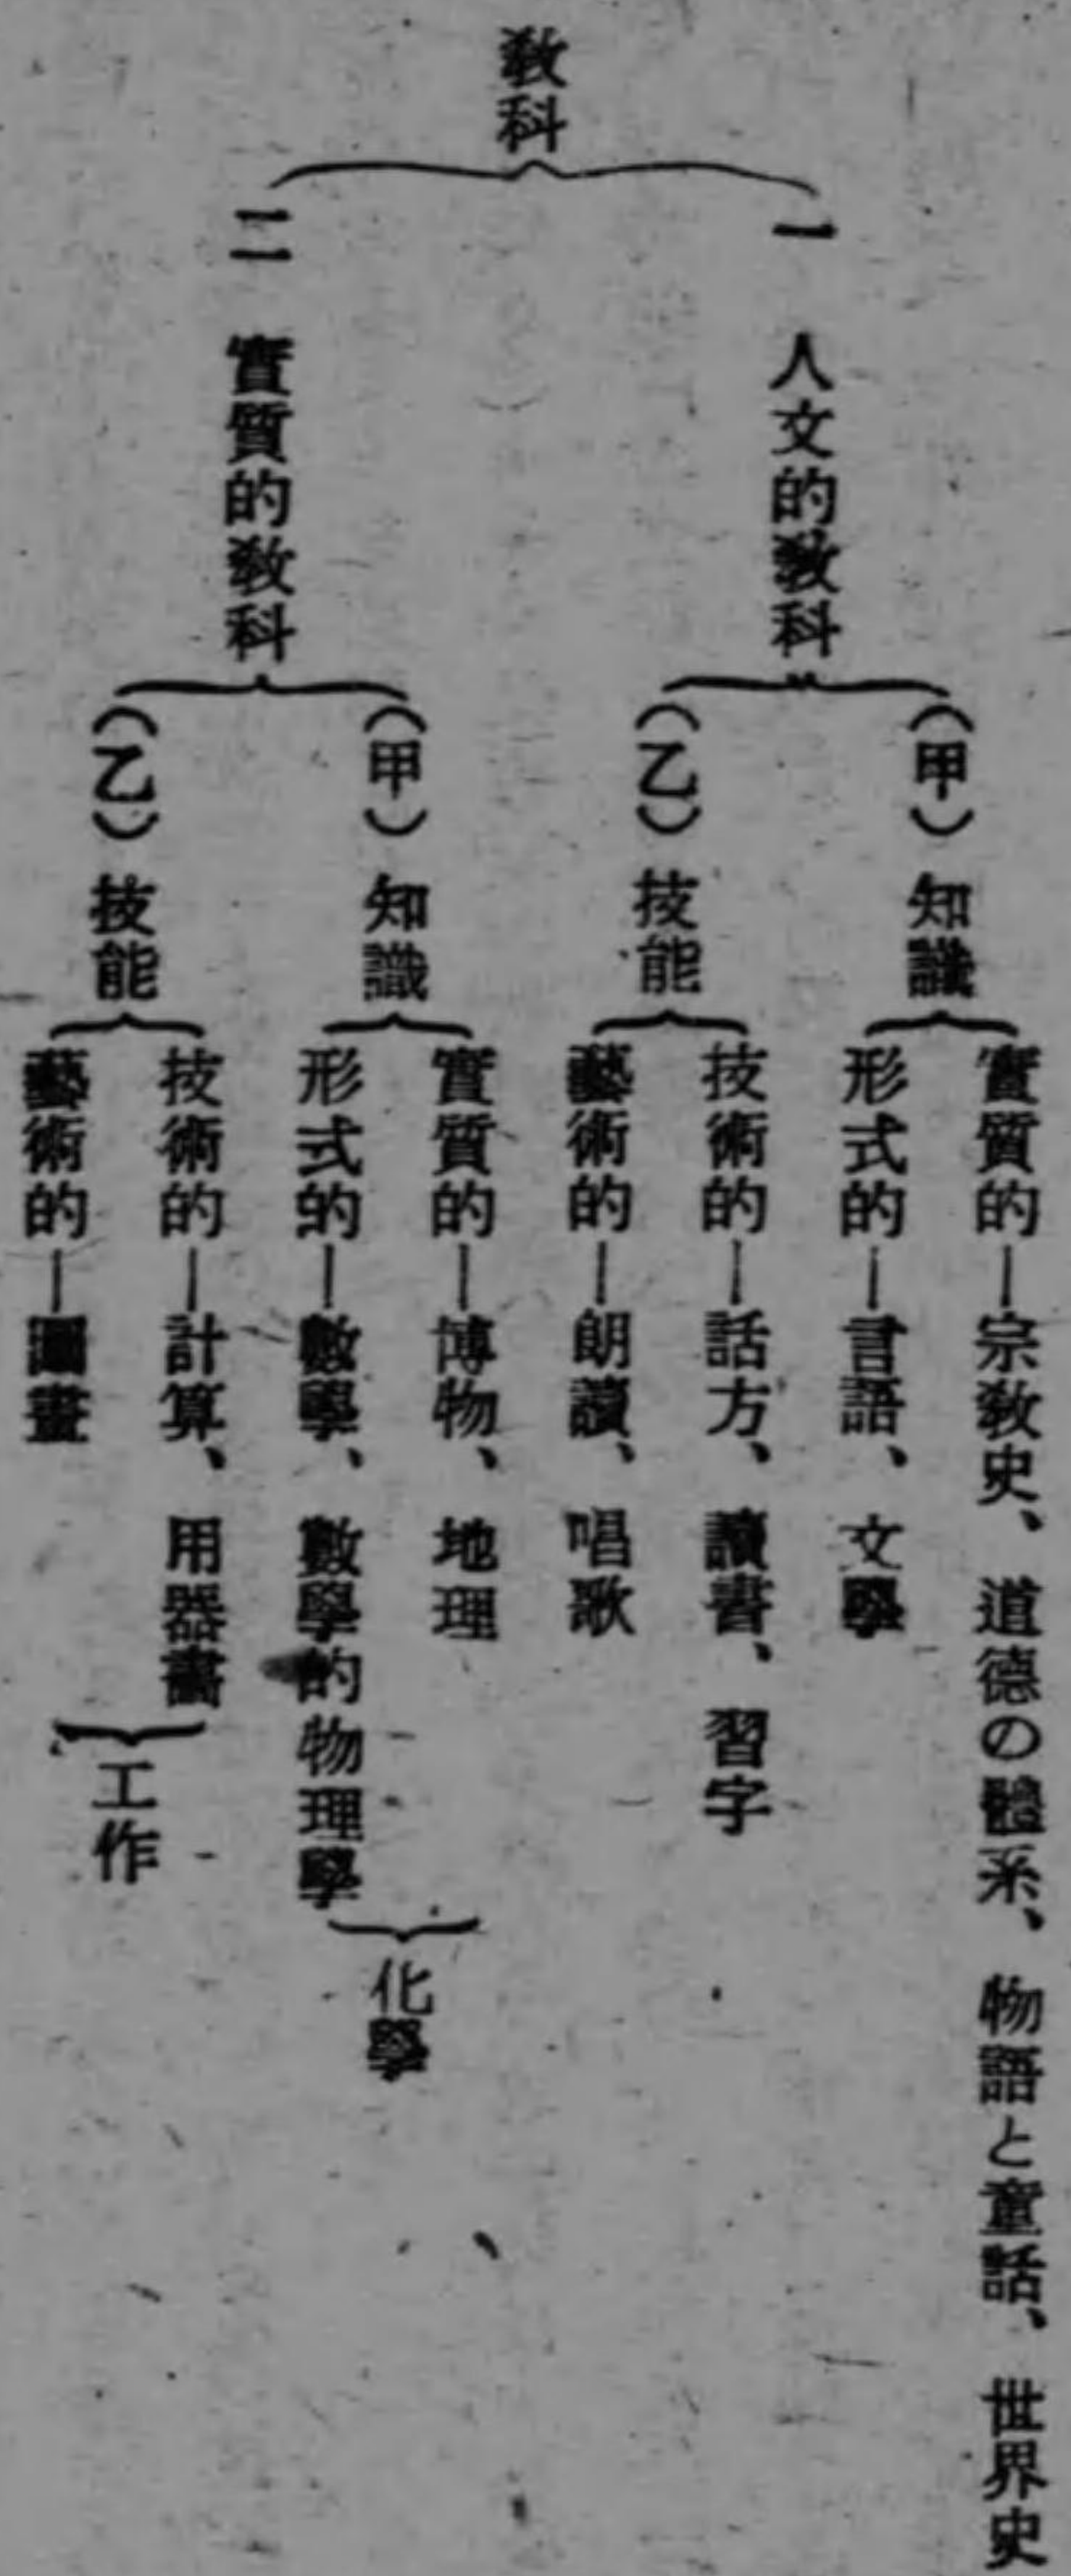 教科
一 人文的教科
(甲) 知識
實質的—宗教史、道德の體系、物語と童話、世界史
形式的—言語、文學
(乙) 技能
技術的—話方、讀書、習字
藝術的—朗讀、唱歌
二 實質的教科
(甲) 知識
實質的—博物、地理
形式的—數學、數學的物理學
化學
(乙) 技能
技術的—計算、用器畫
藝術的—圖畫
工作